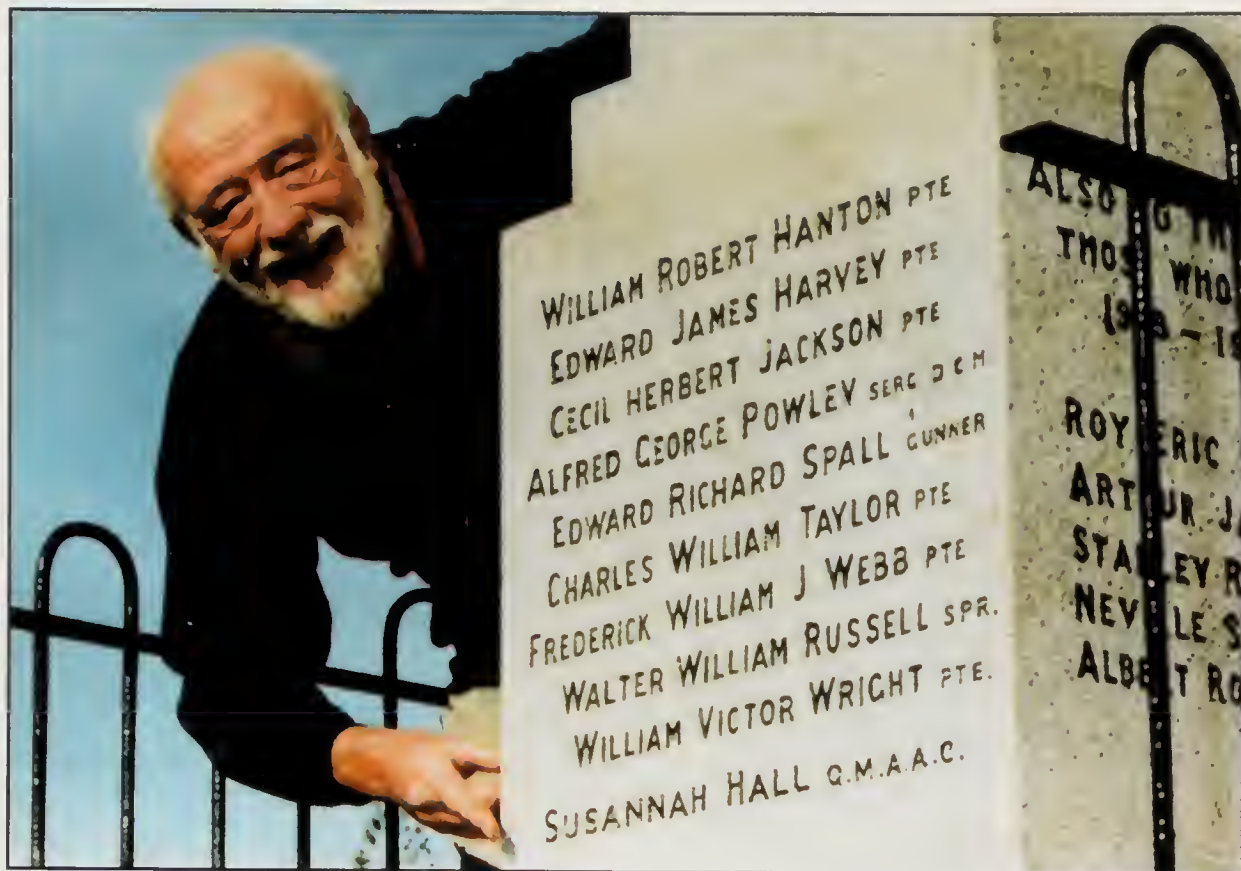 WILLIAM ROBERT HANTON PTE
EDWARD JAMES HARVEY PTE
CECIL HERBERT JACKSON PTE
ALFRED GEORGE POWLEY SERG D C M
EDWARD RICHARD SPALL GUNNER
CHARLES WILLIAM TAYLOR PTE
FREDERICK WILLIAM J WEBB PTE
WALTER WILLIAM RUSSELL SPR.
WILLIAM VICTOR WRIGHT PTE.
SUSANNAH HALL Q.M.A.A.C.
ALSO
WHO
ROY ERIC
ARTHUR
STANLEY
NEVILLE
ALBERT